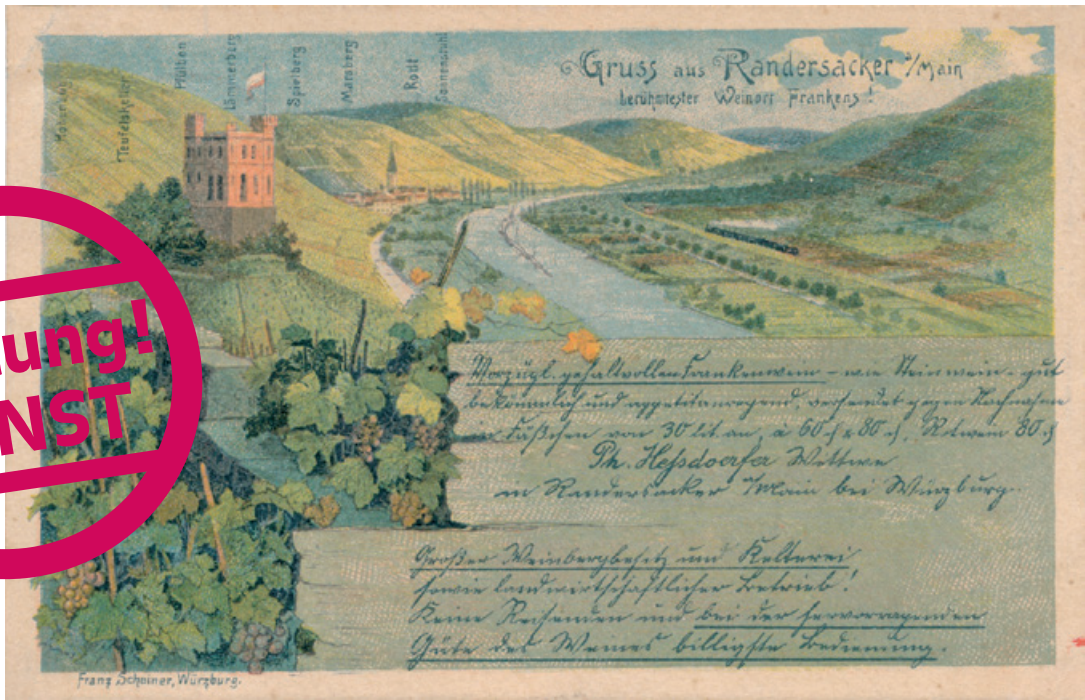 Hohenroth
Teufelskeller
Pfülben
Lämmerberg
Spielberg
Marsberg
Rout
Sonnenstuhl
Gruss aus Randersacker a/Main
berühmtester Weinort Frankens!
ung!
NST
Vorzügl. gehaltvollen Frankenwein – wie Steinwein – gut
bekömmlich und appetitanregend, versendet gegen Nachnahme
in Fäßchen von 30 lit. an, à 60 ₰ & 80 ₰, Rotwein 80 ₰
Ph. Hessdoerfer Wittwe
in Randersacker a/Main bei Würzburg.
Großer Weinbergbesitz und Kelterei
sowie landwirthschaftlicher Betrieb!
Keine Reisenden und bei der hervorragenden
Güte des Weines billigste Bedienung.
Franz Scheiner, Würzburg.